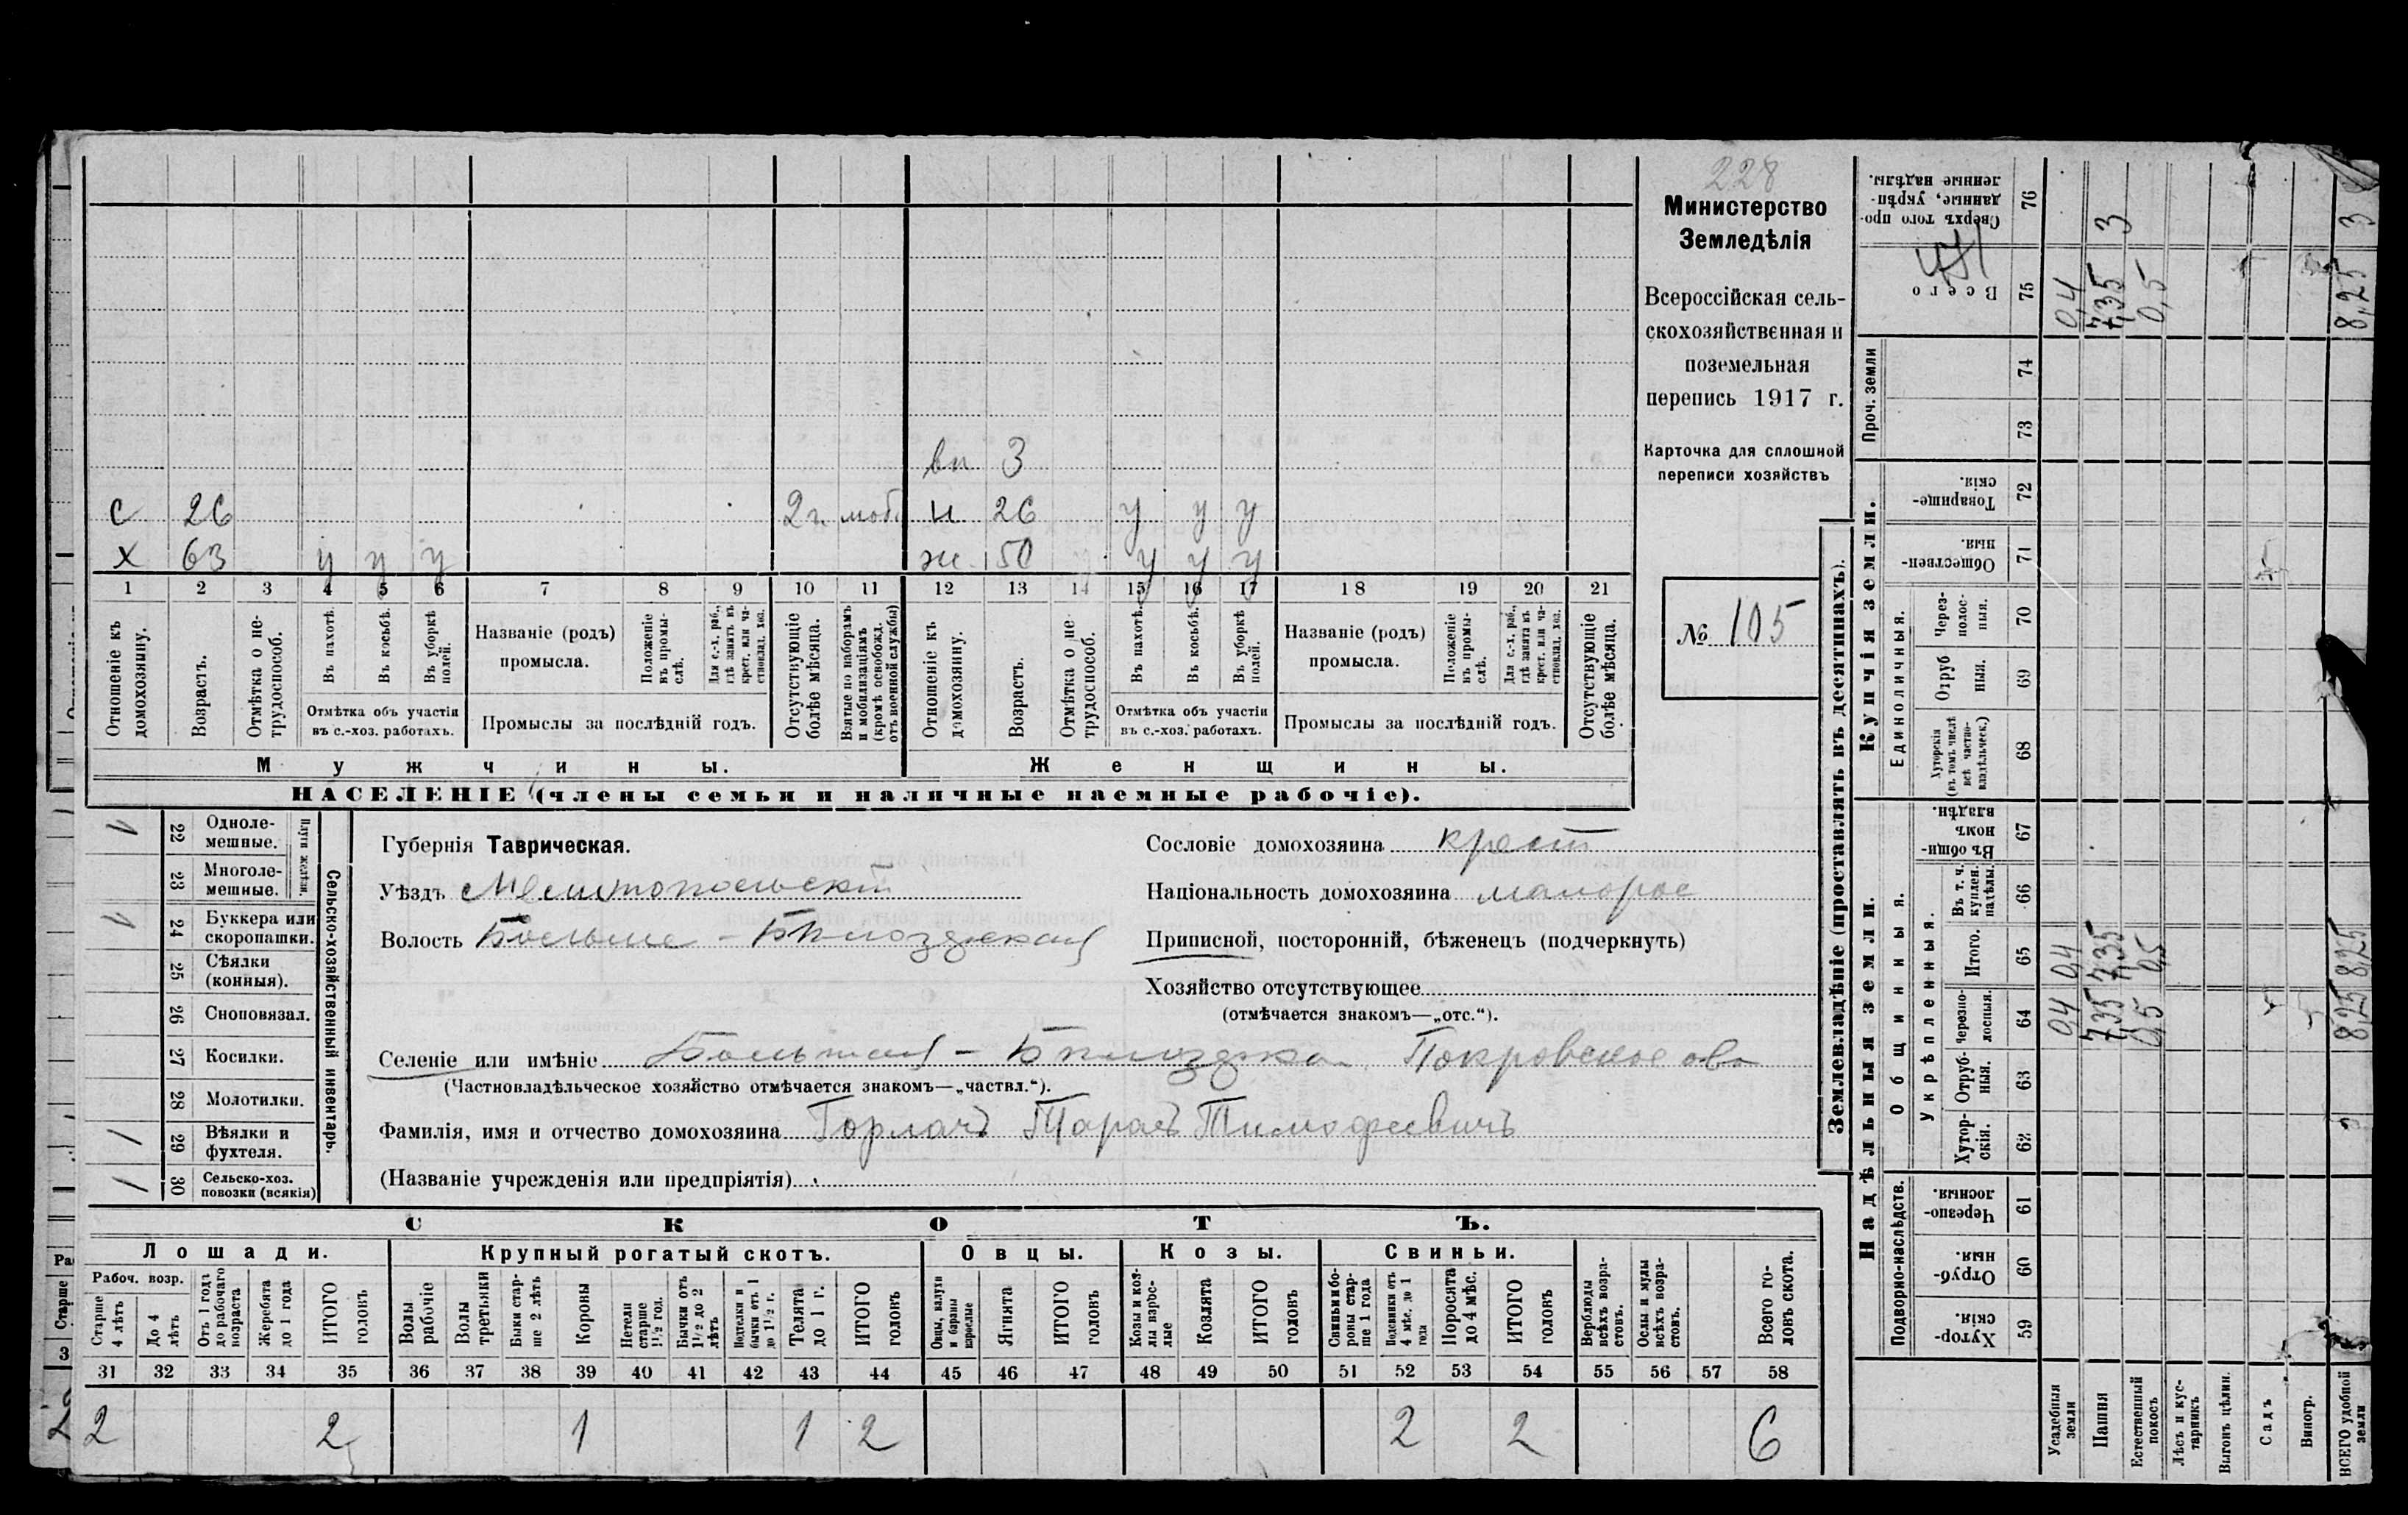 228
Министерство
Земледѣлія
Всероссійская сель-
скохозяйственная и
поземельная
перепись 1917 г.
Карточка для сплошной
переписи хозяйствъ
№ 105
вн 3
с 26 2 г. моб. н 26 у у у
х 63 у у у ж 50 у у у
1 2 3 4 5 6 7 8 9 10 11 12 13 14 15 16 17 18 19 20 21
Отношеніе къ домохозяину.
Возрастъ.
Отмѣтка о не-трудоспособ.
Въ пахотѣ.
Въ косьбѣ.
Въ уборкѣ полей.
Отмѣтка объ участіи
въ с.-хоз. работахъ.
Названіе (родъ)
промысла.
Положеніе въ промы-слѣ.
Для с.-х. раб., гдѣ занятъ въ крест. или ча-стновлад. хоз.
Промыслы за послѣдній годъ.
Отсутствующіе болѣе мѣсяца.
Взятые по наборамъ и мобилизаціямъ (кромѣ освобожд. отъ военной службы)
Отношеніе къ домохозяину.
Возрастъ.
Отмѣтка о не-трудоспособ.
Въ пахотѣ.
Въ косьбѣ.
Въ уборкѣ полей.
Отмѣтка объ участіи
въ с.-хоз. работахъ.
Названіе (родъ)
промысла.
Положеніе въ промы-слѣ.
Для с.-х. раб., гдѣ занята въ крест. или ча-стновлад. хоз.
Промыслы за послѣдній годъ.
Отсутствующіе болѣе мѣсяца.
Мужчины. Женщины.
НАСЕЛЕНІЕ (члены семьи и наличные наемные рабочіе).
Сельско-хозяйственный инвентарь.
Плуги желѣзн.
22 Одноле-мешные. 1
23 Многоле-мешные.
24 Буккера или скоропашки. 1
25 Сѣялки (конныя).
26 Сноповязал.
27 Косилки.
28 Молотилки.
29 Вѣялки и фухтеля. 1
30 Сельско-хоз. повозки (всякія) 1
Губернія Таврическая.
Уѣздъ Мелитопольскій
Волость Больше-Бѣлозерская
Сословіе домохозяина крест
Національность домохозяина малорос
Приписной, посторонній, бѣженецъ (подчеркнуть)
Хозяйство отсутствующее
(отмѣчается знакомъ—„отс.“).
Селеніе или имѣніе Большая-Бѣлозерка Покровское ово
(Частновладѣльческое хозяйство отмѣчается знакомъ—„частвл.“).
Фамилія, имя и отчество домохозяина Горлачъ Тарасъ Тимофеевичъ
(Названіе учрежденія или предпріятія)
СКОТЪ.
Лошади. Крупный рогатый скотъ. Овцы. Козы. Свиньи.
Рабоч. возр.
Старше 4 лѣтъ
До 4 лѣтъ
Отъ 1 года до рабочаго возраста
Жеребята до 1 года
ИТОГО головъ
Волы рабочіе
Волы третьяки
Быки стар-ше 2 лѣтъ
Коровы
Нетели старше 1½ год.
Бычки отъ 1½ до 2 лѣтъ
Подтелки и бычки отъ 1 до 1½ г.
Телята до 1 г.
ИТОГО головъ
Овцы, валухи и бараны взрослые
Ягнята
ИТОГО головъ
Козы и коз-лы взрос-лые
Козлята
ИТОГО головъ
Свиньи и бо-ровы стар-ше 1 года
Подсвинки отъ 4 мѣс. до 1 года
Поросята до 4 мѣс.
ИТОГО головъ
Верблюды всѣхъ возра-стовъ.
Ослы и мулы всѣхъ возра-стовъ.
Всего го-ловъ скота.
31 32 33 34 35 36 37 38 39 40 41 42 43 44 45 46 47 48 49 50 51 52 53 54 55 56 57 58
2 2 1 1 2 2 2 6
Землевладѣніе (проставлять въ десятинахъ).
Надѣльныя земли. Купчія земли. Проч. земли
Подворно-наслѣдств. Общинныя. Укрѣпленныя. Единоличныя.
Хутор-скія. 59
Отруб-ныя. 60
Черезпо-лосныя. 61
Хутор-скія. 62
Отруб-ныя. 63
Черезпо-лосныя. 64
Итого. 65
Въ т. ч. куплен. надѣлы. 66
Въ общи-номъ владѣн. 67
Хуторскія (въ томъ числѣ всѣ частно-владѣльческ.) 68
Отруб ныя. 69
Через-полос-ныя. 70
Обществен-ныя. 71
Товарище-скія. 72
73
74
Всего 75
Сверхъ того про-данные, укрѣп-ленные надѣлы. 76
Усадебныя земли 0,4 0,4 0,4
Пашня 7,35 7,35 7,35 3
Естественный покосъ 0,5 0,5 0,5
Лѣсъ и кус-тарникъ
Выгонъ цѣлин.
Садъ
Виногр.
ВСЕГО удобной земли 8,25 8,25 8,25 3